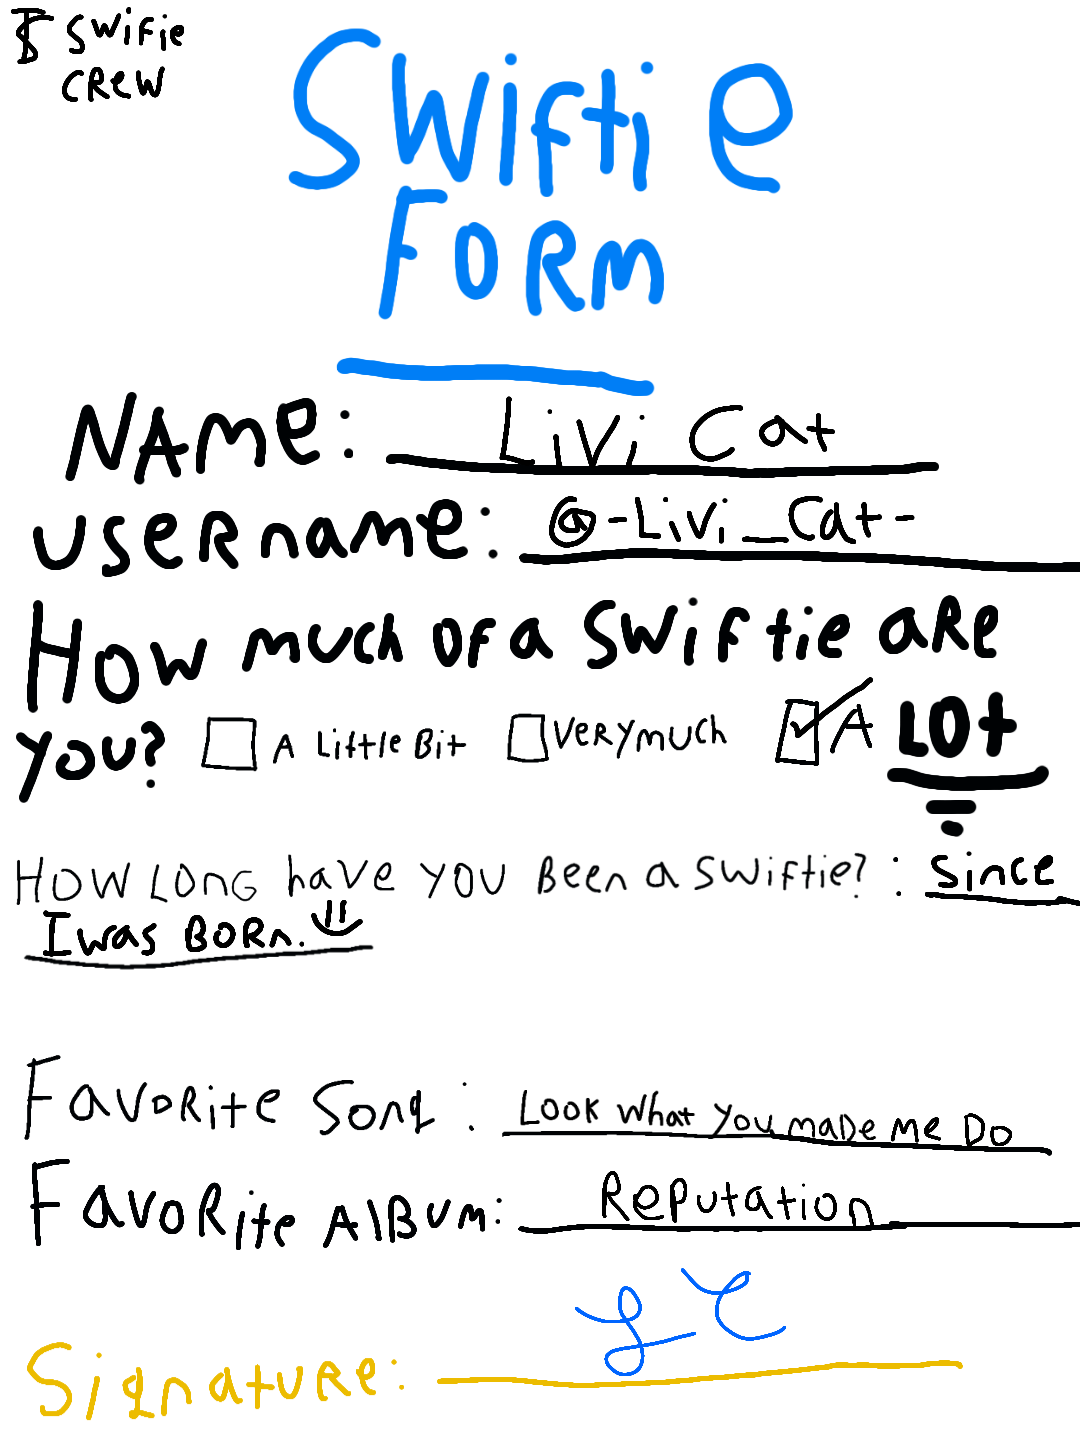 TS SWIFIE
CREW
SWIFTIE
FORM
NAMe: LiVi Cat
useRname: @-LiVi_Cat-
How much OF a SWiFtie aRe
you? A LittLe Bit VeRy much A LOt
HOW LONG have YOU Been a SWiFtie? : Since
I was BORn.
FaVORite Song : LOOK What You maDe Me DO
FaVoRite AlBum: RePutation
SignatuRe: LC